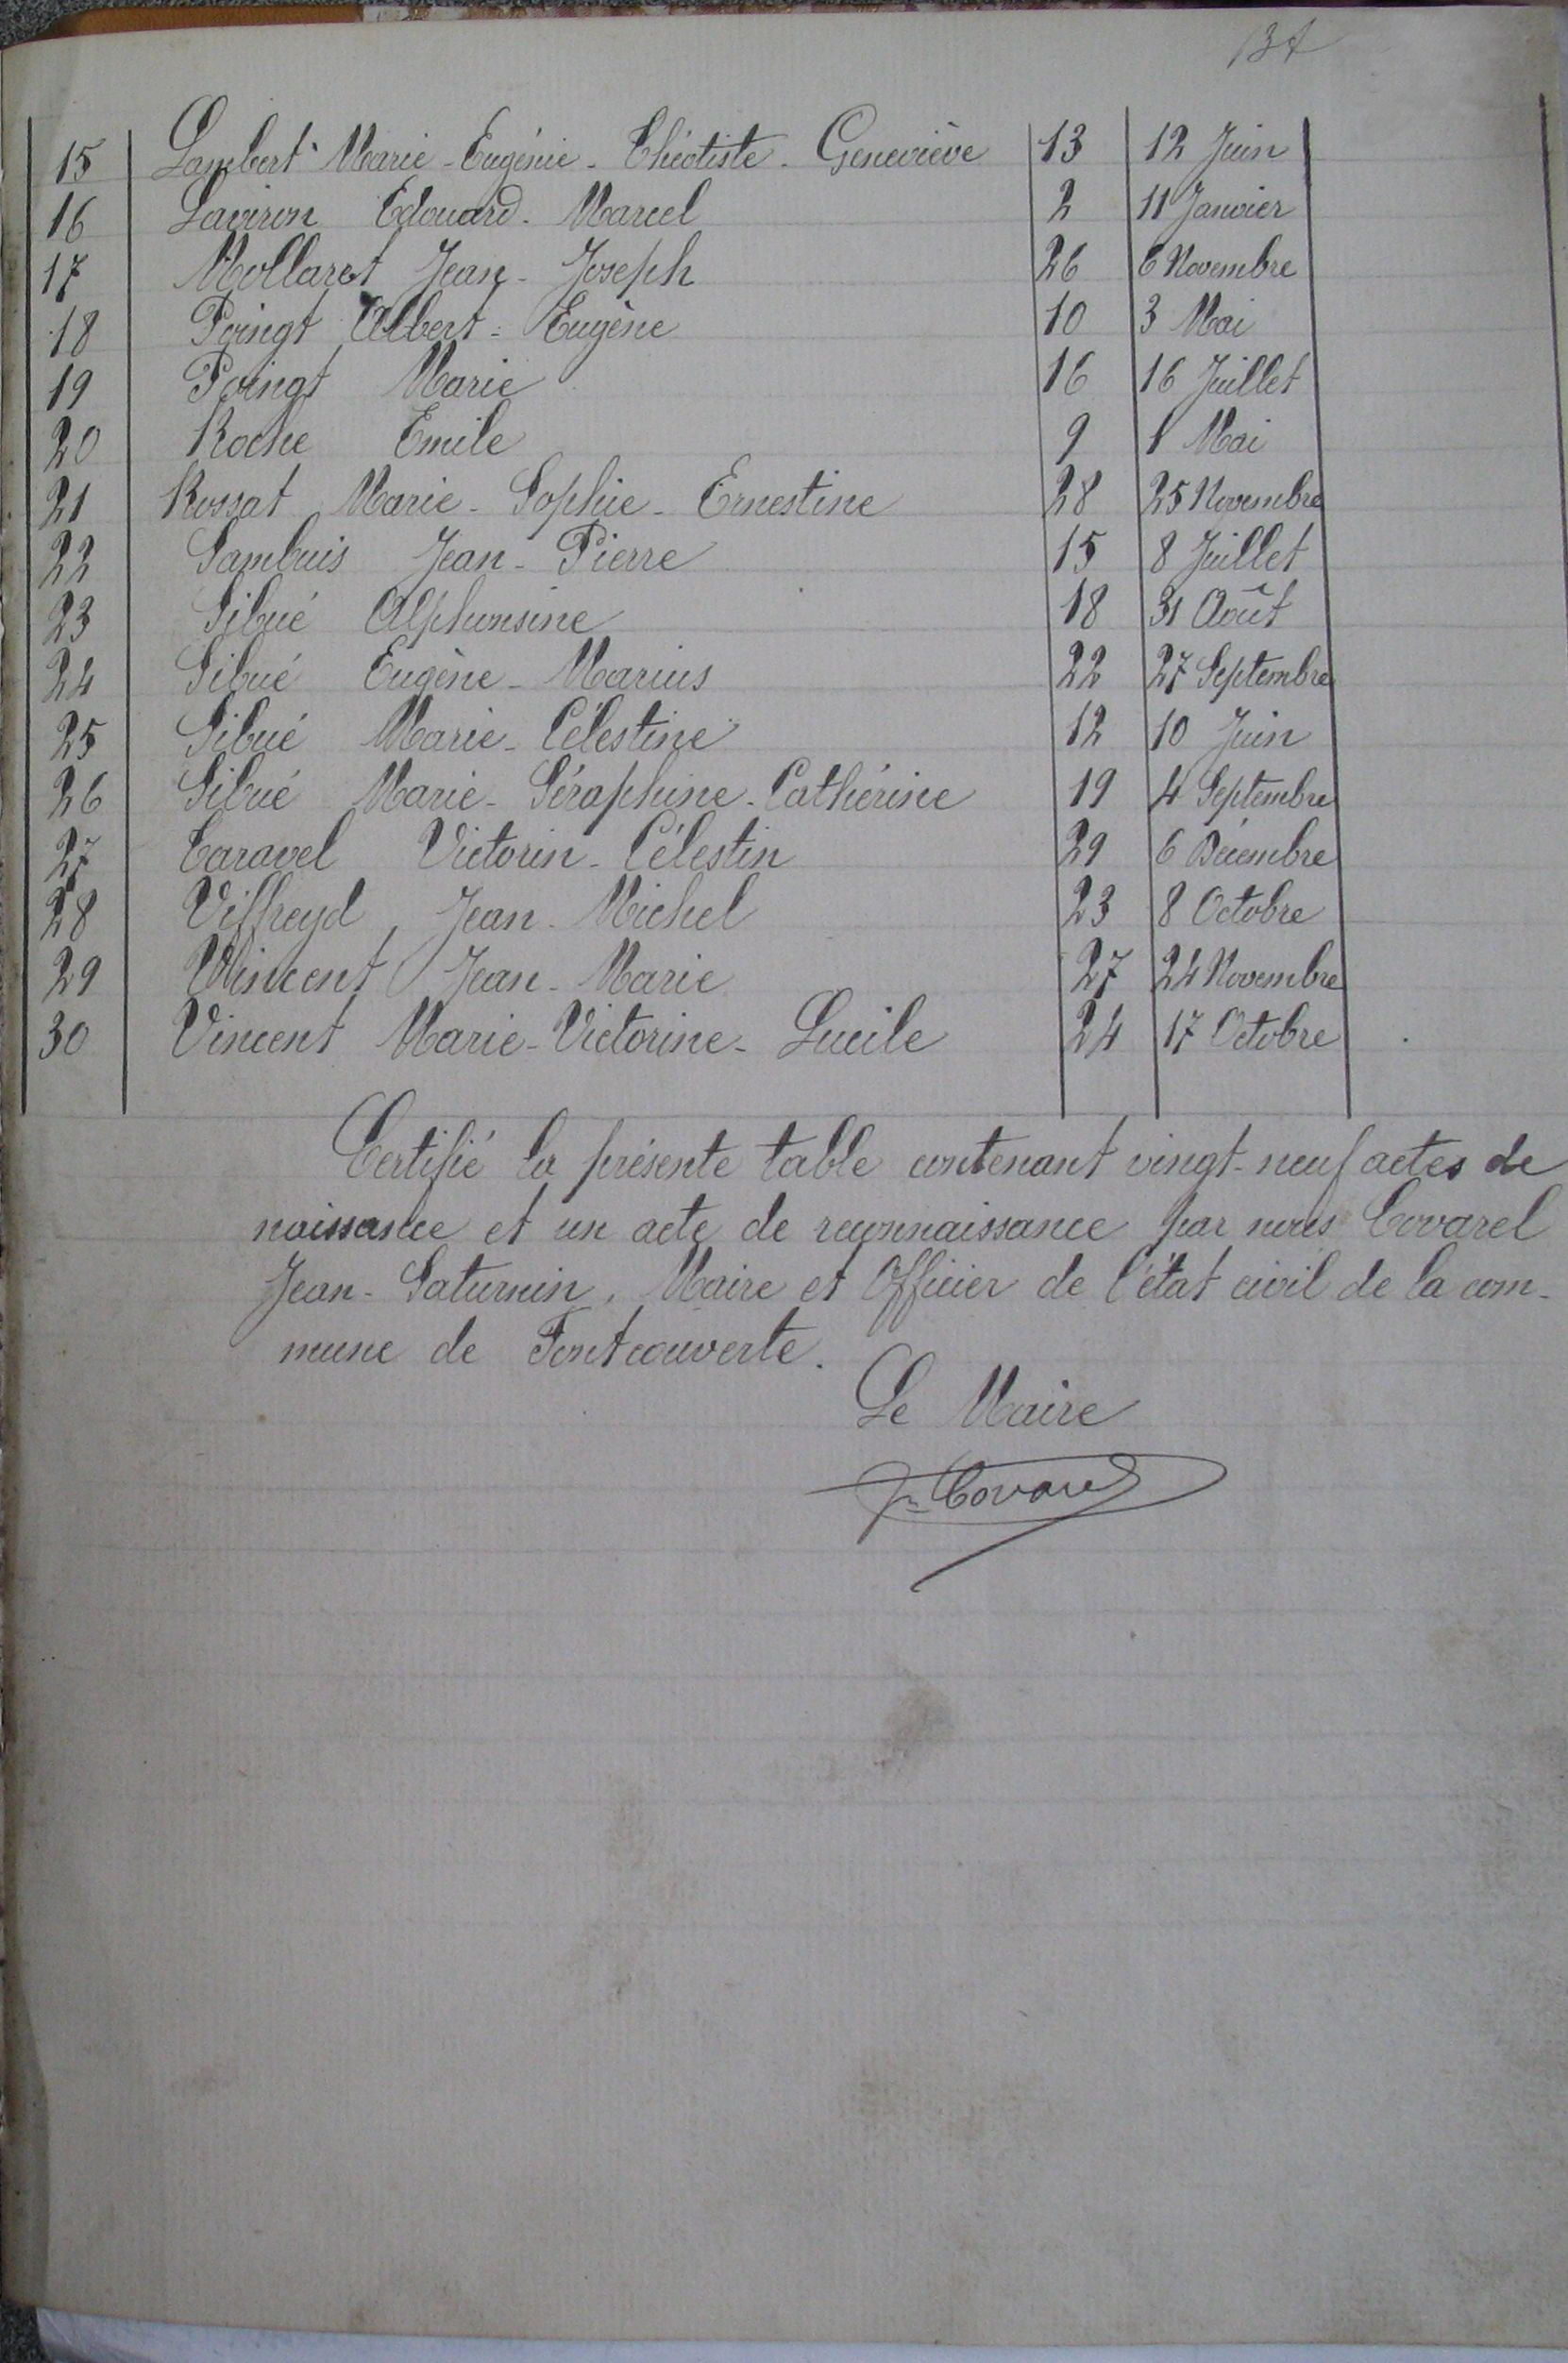 15 Lambert Marie-Eugénie-Théotiste-Geneviève 13 12 Juin
16 Laviron Edouard-Marcel 2 11 Janvier
17 Mollaret Jean-Joseph 26 6 Novembre
18 Poingt Albert-Eugène 10 3 Mai
19 Poingt Marie 16 16 Juillet
20 Roche Emile 9 1 Mai
21 Rossat Marie-Sophie-Ernestine 28 25 Novembre
22 Sambuis Jean-Pierre 15 8 Juillet
23 Sibué Alphonsine 18 31 Août
24 Sibué Eugène-Marius 22 27 Septembre
25 Sibué Marie-Célestine 12 10 Juin
26 Sibué Marie-Séraphine-Cathérine 19 4 Septembre
27 Taravel Victorin-Célestin 29 6 Décembre
28 Viffreyd Jean-Michel 23 8 Octobre
29 Vincent Jean-Marie 27 24 Novembre
30 Vincent Marie-Victorine-Lucile 24 17 Octobre
Certifié la présente table contenant vingt-neuf actes de
naissance et un acte de reconnaissance par nous Covarel
Jean-Saturnin, Maire et Officier de l'état civil de la com-
mune de Fontcouverte.
Le Maire
Jn Covarel